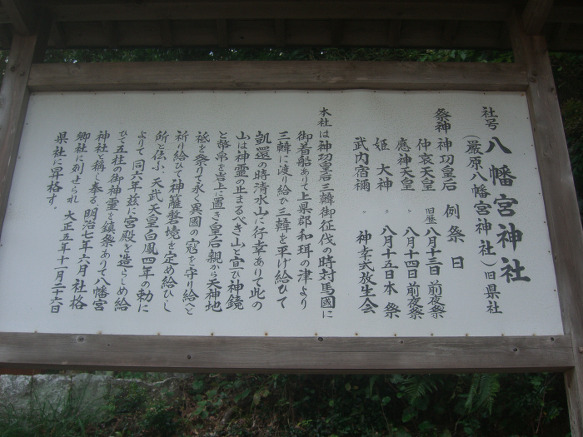 社号 八幡宮神社
（厳原八幡宮神社）旧県社
祭神 神功皇后 例祭日
仲哀天皇 旧暦 八月十三日 前夜祭
應神天皇 。 八月十四日 前夜祭
姫大神 。 八月十五日 本祭
武内宿禰 。 神幸式放生会
本社は神功皇后三韓御征伐の時対馬國に
御着船ありて上県郡和珥の津より
三韓に渡り給ひ三韓を平げ給ひて
凱還の時清水山に行幸ありて此の
山は神霊の止まるべき山と宣ひ神鏡
と幣帛を岩上に置き皇后親から天神地
祗を祭りて永く異國の寇を守り給へと
祈り給ひて神籬磐境を定め給ひし
所と伝ふ 天武天皇白鳳四年の勅に
よりて同六年茲に宮殿を造らしめ給
ひて五柱の御神霊を鎮祭ありて八幡宮
神社と称へ奉る 明治七年六月社格
郷社に列せられ 大正五年十一月二十六日
県社に昇格す。